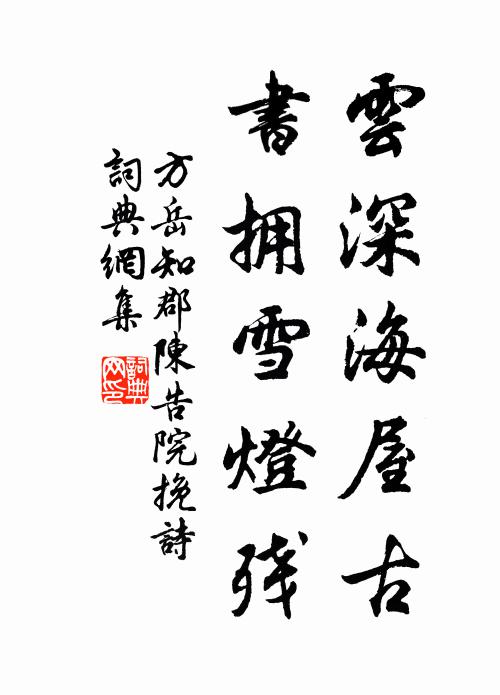 雲深海屋古
書拥雪燈残
方岳知郡陳告院挽詩
詞典網集
詞典
网印